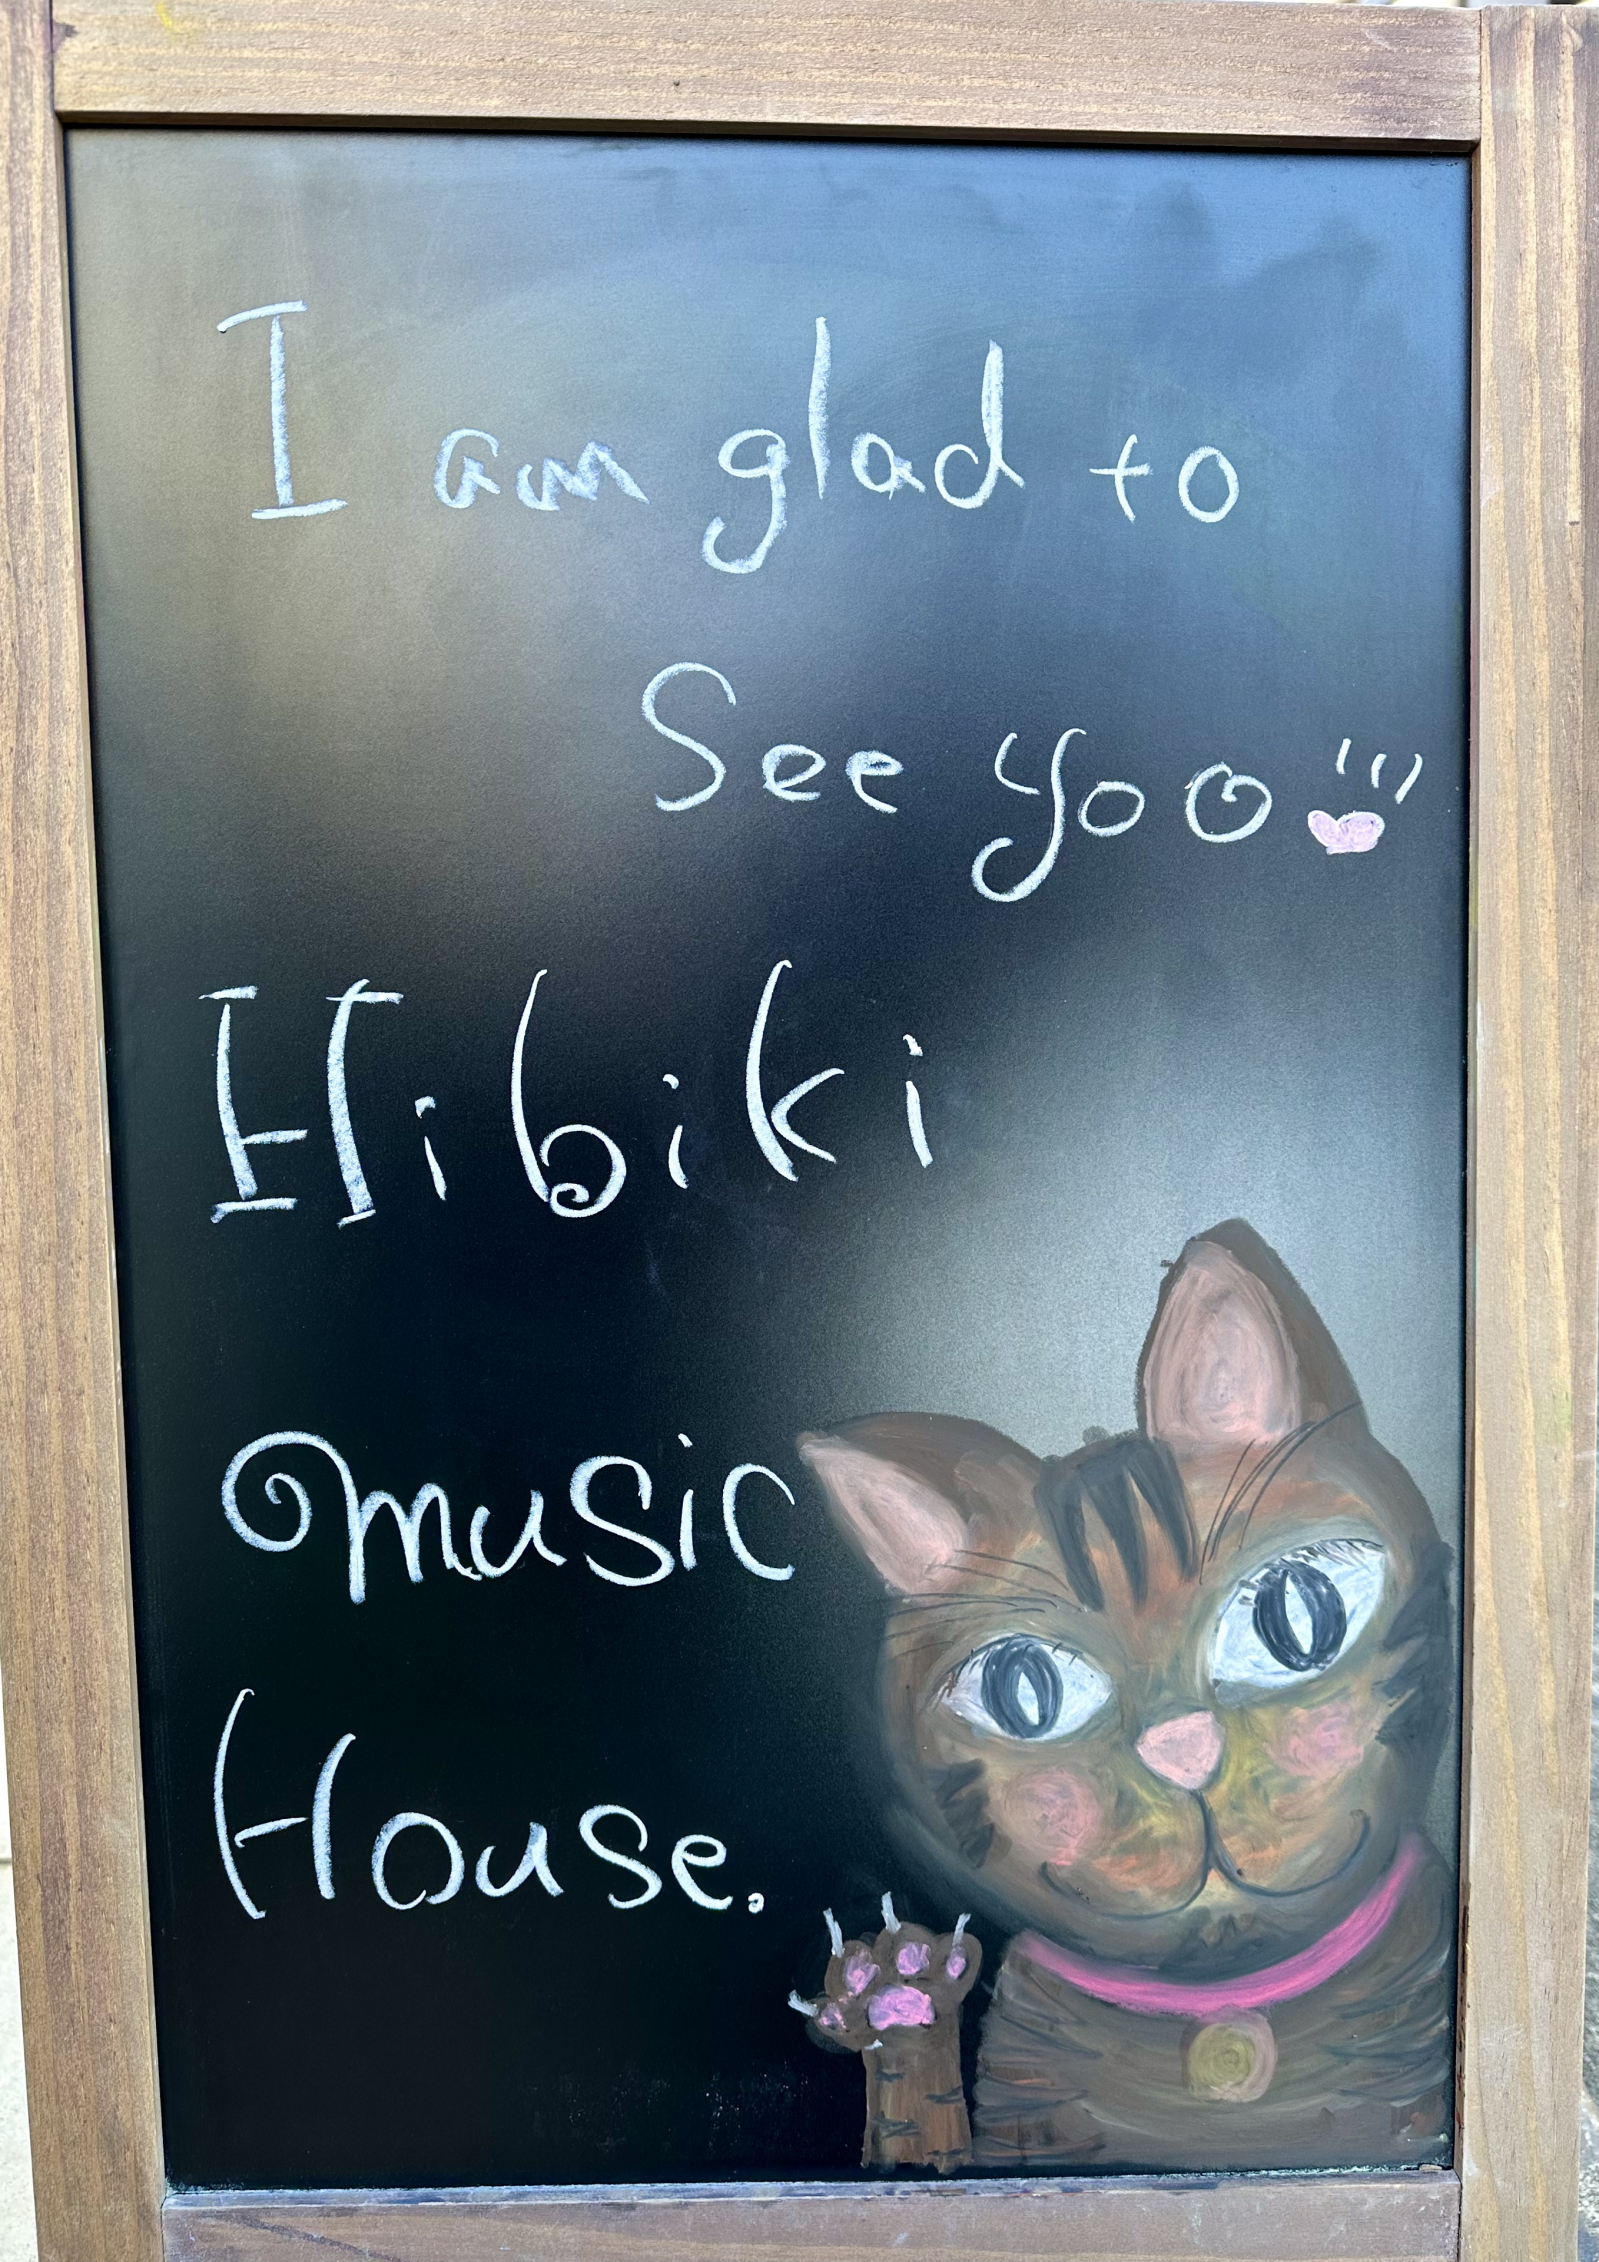 I am glad to
See yoo
Hibiki
music
House.